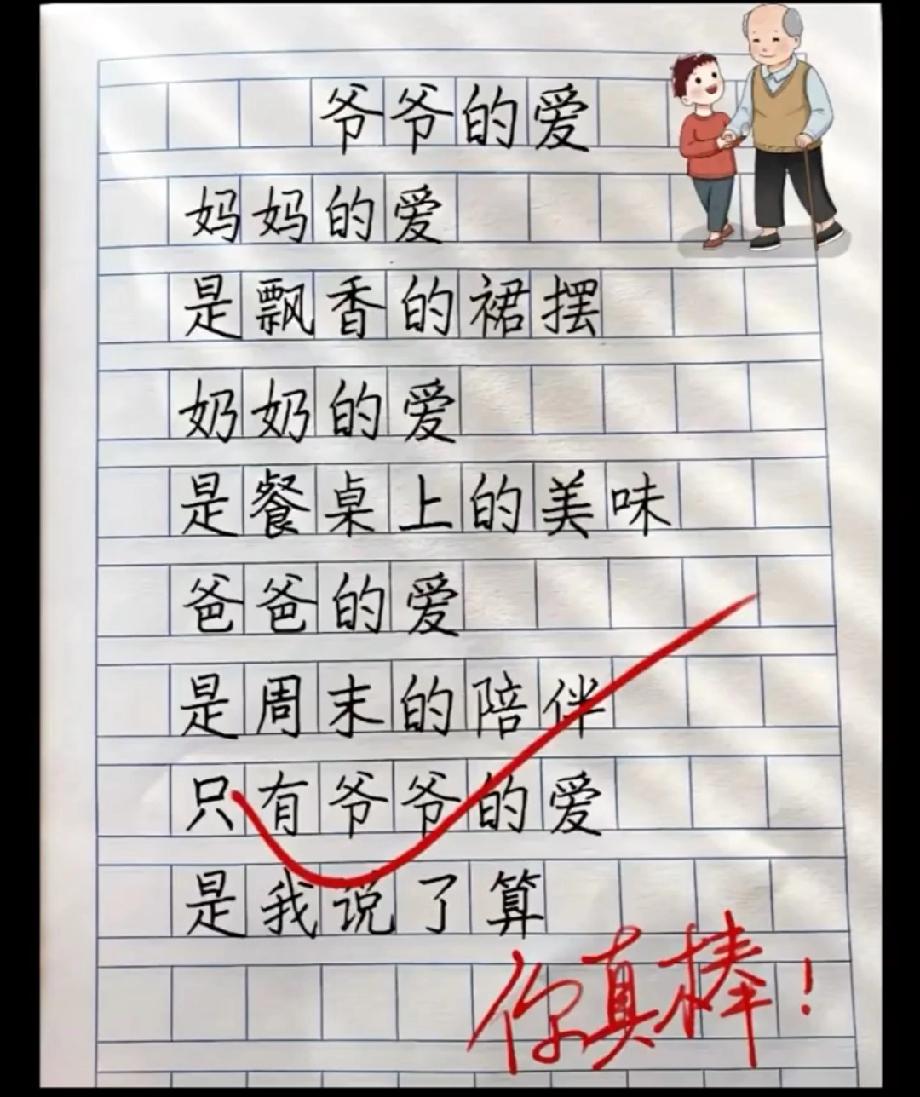 爷爷的爱
妈妈的爱
是飘香的裙摆
奶奶的爱
是餐桌上的美味
爸爸的爱
是周末的陪伴
只有爷爷的爱
是我说了算
你真棒!